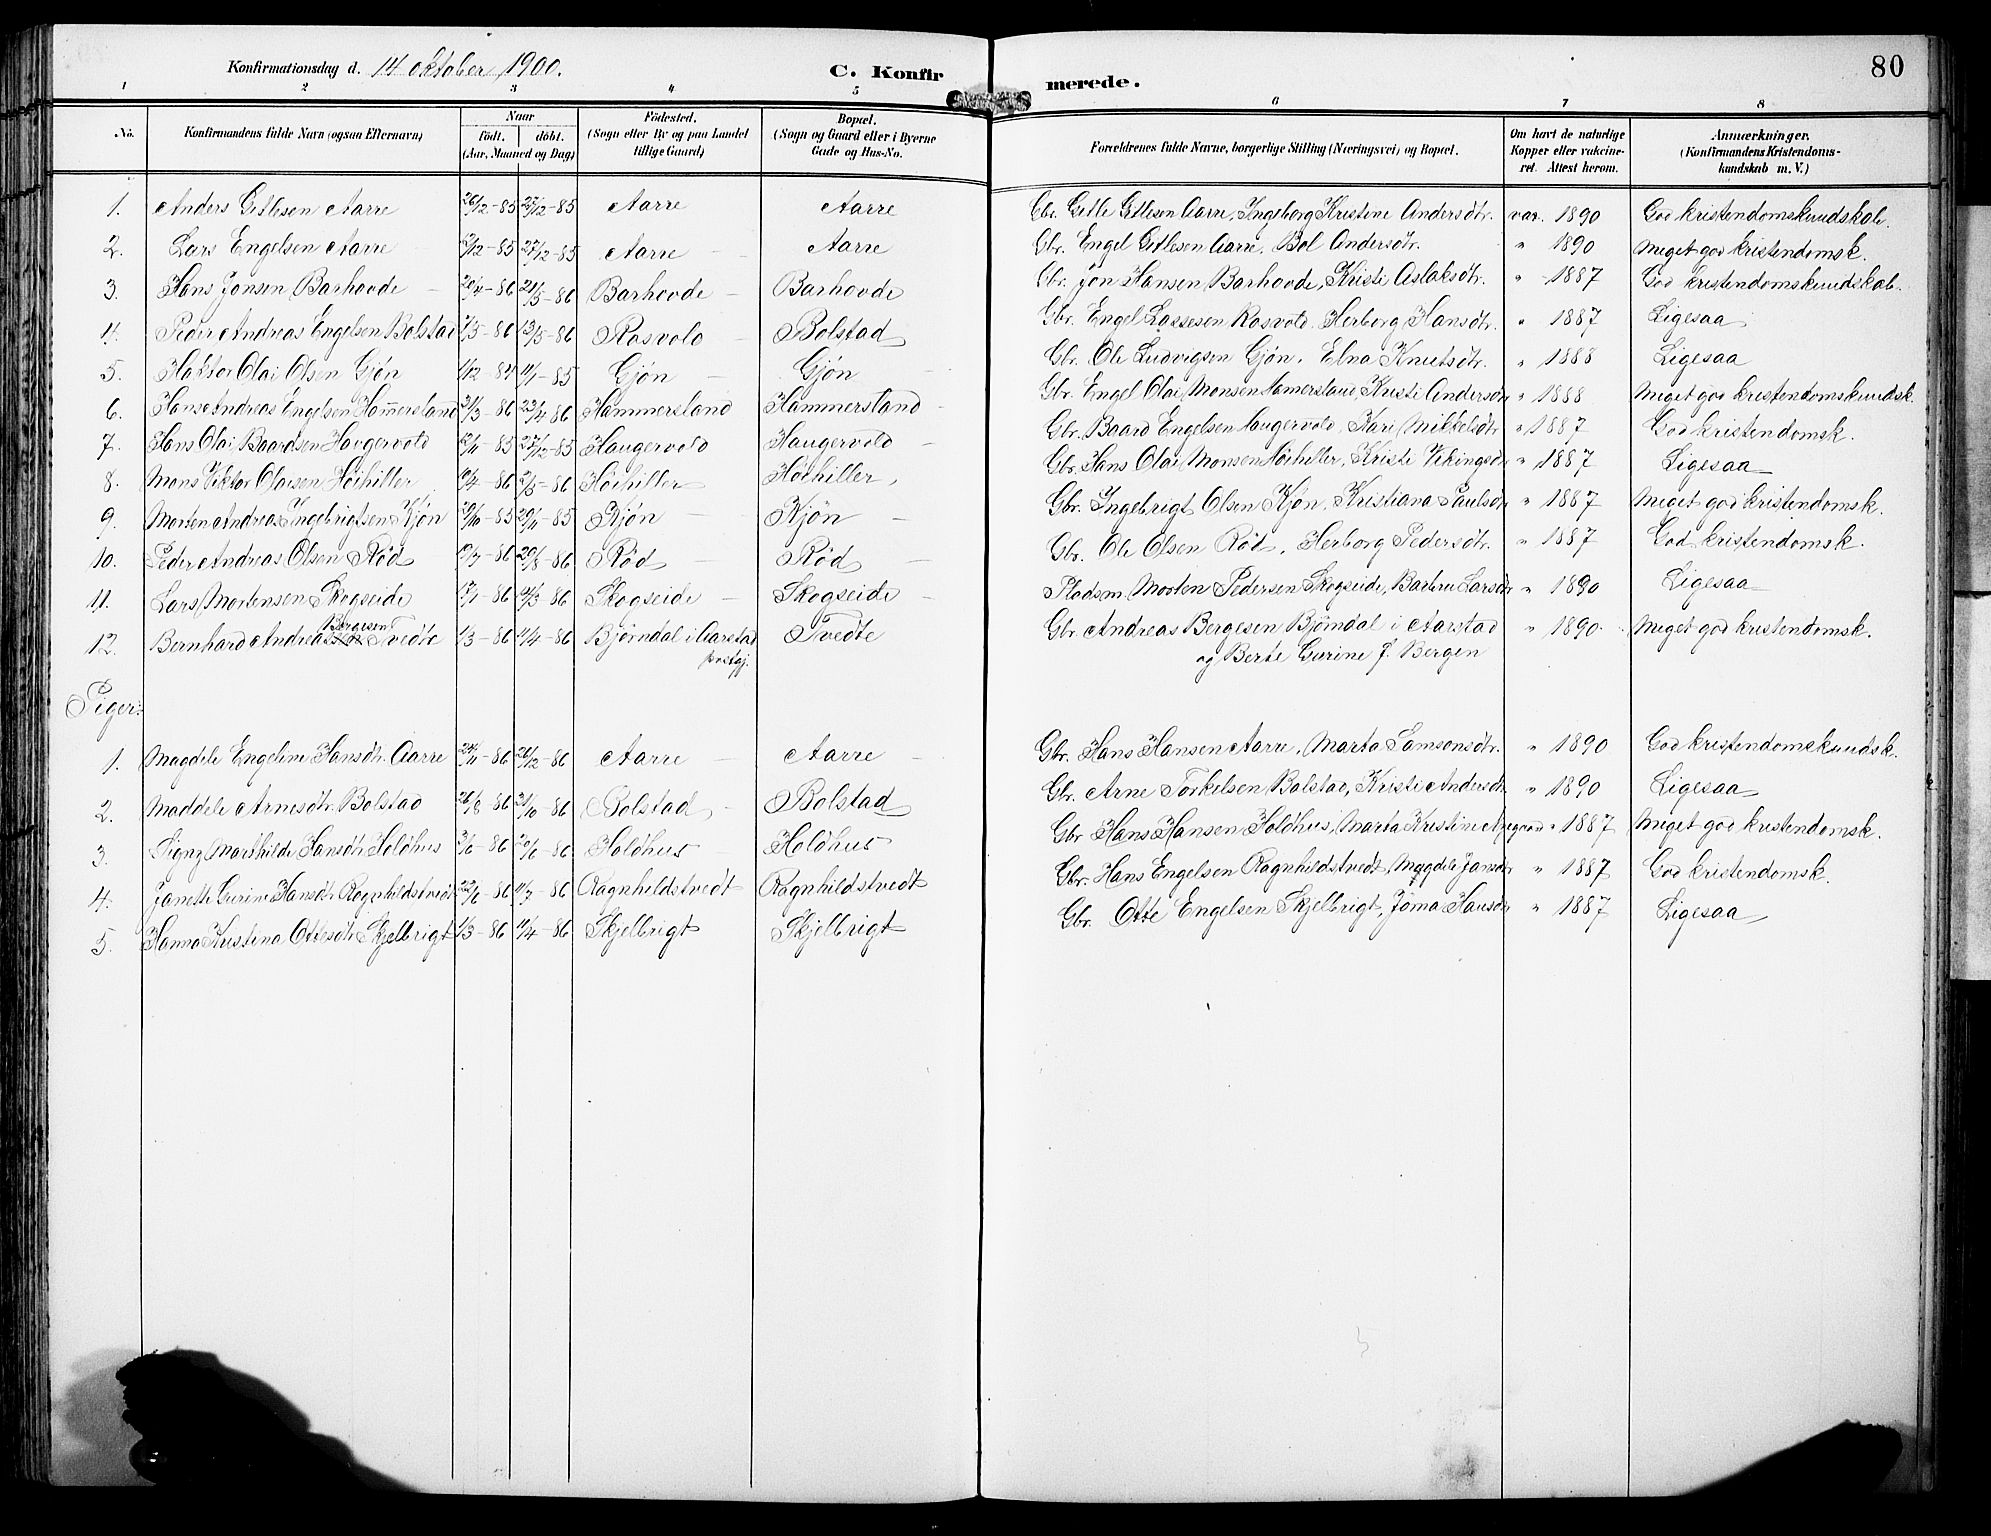 80
Konfirmationsdag d. 14 oktober 1900. C. Konfirmerede.
1 2 3 4 5 6 7 8
No. Konfirmandens fulde Navn (ogsaa Efternavn) Naar födt. döbt. (Aar, Maaned og Dag) Födested. (Sogn eller By og paa Landet tillige Gaard) Bopæl. (Sogn og Gaard eller i Byerne Gade og Hus-No. Forældrenes fulde Navne, borgerlige Stilling (Næringsvei) og Bopæl. Om havt de naturlige Kopper eller vakcineret. Attest herom. Anmærkninger. (Konfirmandens Kristendomskundskab m. V.)
1. Anders Gitlesen Aarre 26/12-85 27/12-85 Aarre Aarre Gbr. Gitle Gitlesen Aarre, Ingeborg Kristine Andersdtr. vac. 1890 God kristendomskundskab.
2. Lars Engelsen Aarre /12-85 27/12-85 Aarre Aarre Gbr. Engel Gitlesen Aarre, Bol Andersdtr. " 1890 Meget god kristendomsk.
3. Hans Jonsen Barhovde 20/4-86 21/5-86 Barhovde Barhovde Gbr. Jon Hansen Barhovde, Kristi Aslaksdtr. " 1887 God kristendomskundskab.
4. Peder Andreas Engelsen Bolstad /5-86 13/5-86 Rosvold Bolstad Gbr. Engel Lassesen Rosvold, Herborg Hansdtr. " 1887 Ligesaa
5. Haktor Olai Olsen Gjön 1/12-84 11/1-85 Gjön Gjön Gbr. Ole Ludvigsen Gjön, Elna Knutsdtr. " 1888 Ligesaa
6. Hans Andreas Engelsen Hammersland 31/3-86 23/4-86 Hammersland Hammersland Gbr. Engel Olai Monsen Hamersland, Kristi Andersdtr " 1888 Meget god kristendomskundsk.
7. Hans Olai Baardsen Haugervold /11-85 27/12-85 Haugervold Haugervold Gbr. Baard Engelsen Haugervold, Kari Mikkelsdtr " 1887 God kristendomsk.
8. Mons Viktor Olaisen Höihiller /4-86 2/5-86 Höihiller Höihiller Gbr. Hans Olai Monsen Höihiller, Kristi Vikingsdtr " 1887 Ligesaa
9. Morten Andreas Ingebrigtsen Kjön 20/10-85 29/11-85 Kjön Kjön Gbr. Ingebrigt Olsen Kjön, Kristiana Paulsdtr " 1887 Meget god kristendomsk.
10. Peder Andreas Olsen Röd /7-86 20/8-86 Röd Röd Gbr. Ole Olsen Röd, Herborg Pedersdtr. " 1887 God kristendomsk.
11. Lars Mortensen Skogseide /1-86 14/3-86 Skogseide Skogseide Pladsm. Morten Pedersen Skogseide, Barbru Larsdtr " 1890 Ligesaa
12. Bernhard Andreas Bergesen Tvedte 1/3-86 11/4-86 Björndal i Aarstad prstgj. Tvedte Gbr. Andreas Bergesen Björndal i Aarstad " 1890 Meget god kristendomsk.
og Berte Gurine f. Bergen
Piger:
1. Magdele Engeline Hansdtr. Aarre 24/11-86 26/12-86 Aarre Aarre Gbr. Hans Hansen Aarre, Marta Samsonsdtr. " 1890 God kristendomskundsk.
2. Maddele Arnesdtr. Bolstad 26/8-86 31/10-86 Bolstad Bolstad Gbr. Arne Torkelsen Bolstad, Kristi Andersdtr " 1890 Ligesaa
3. Signy Marthilde Hansdtr Holdhus 3/6-86 20/6-86 Holdhus Holdhus Gbr. Hans Hansen Holdhus, Marta Kristine " 1887 Meget god kristendomsk.
4. Janette Gurine Hansdtr Ragnhildstvedt 22/6-86 11/7-86 Ragnhildstvedt Ragnhildstvedt Gbr. Hans Engelsen Ragnhildstvedt, Magdele Jansdtr " 1887 God kristendomsk.
5. Hanna Kristina Ottesdtr Skjelbrigt 1/3-86 11/4-86 Skjelbrigt Skjelbrigt Gbr. Otte Engelsen Skjelbrigt, Joma Hansdtr " 1887 Ligesaa